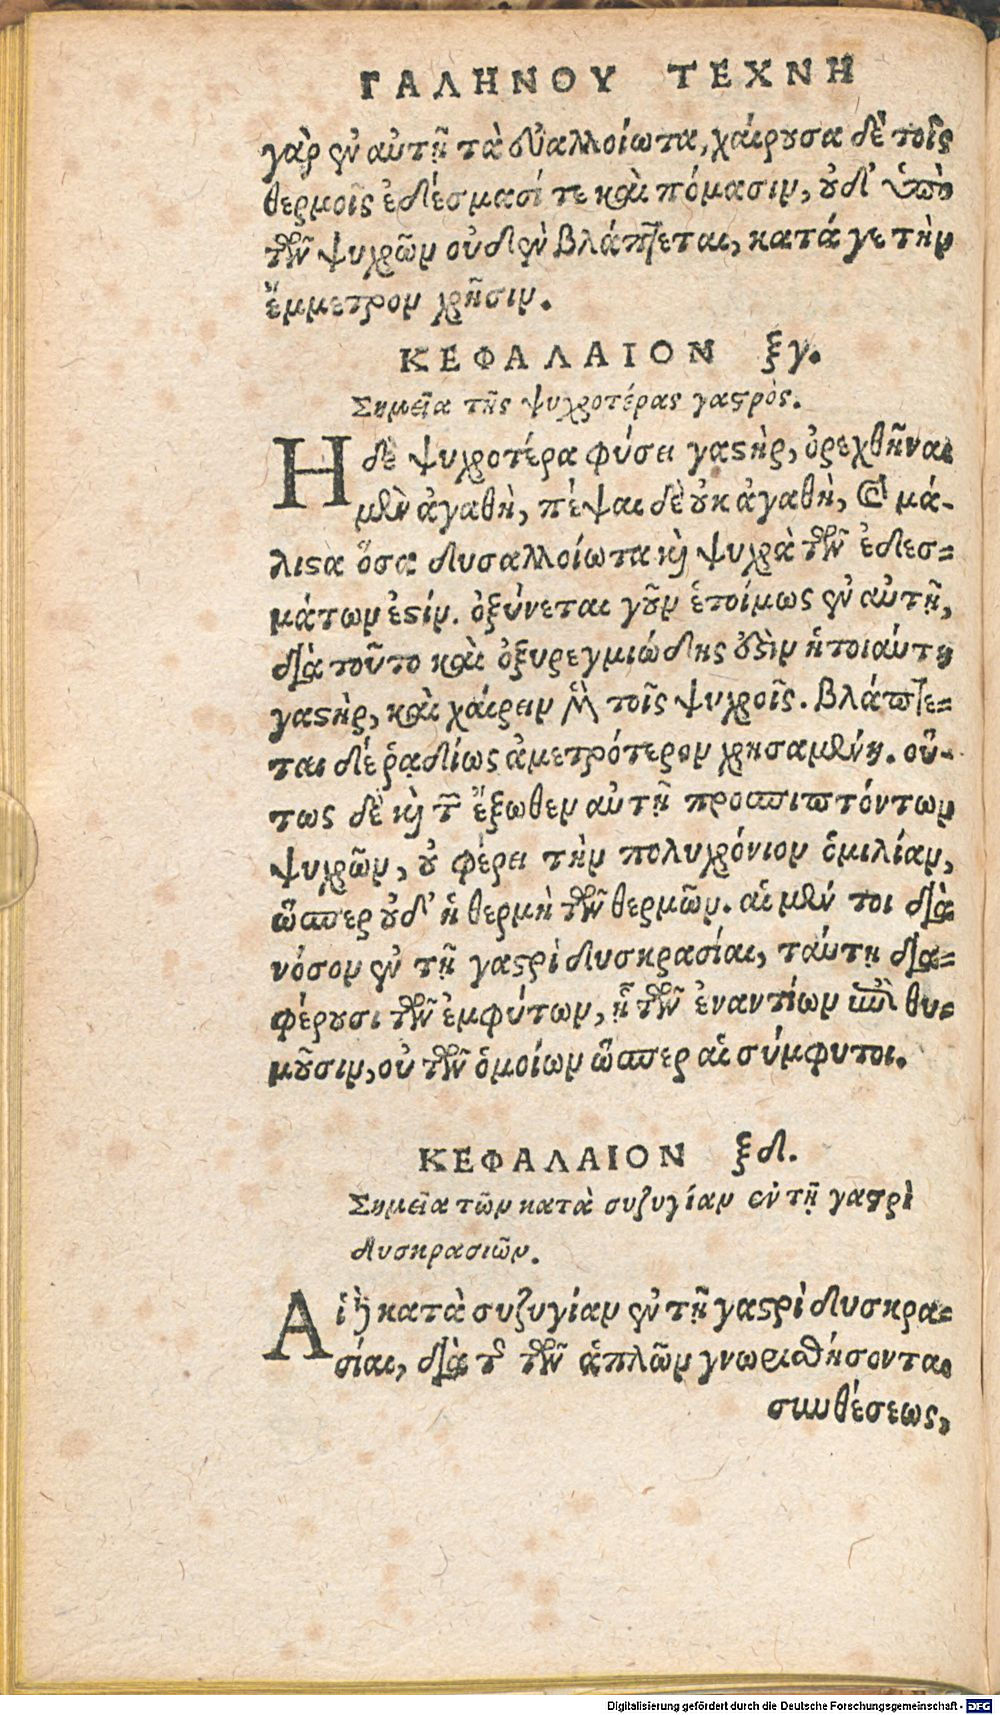 ΓΑΛΗΝΟΥ ΤΕΧΝΗ
γὰρ ἐν αὐτῇ τὰ εὐαλλοίωτα, χαίρουσα δὲ τοῖς
θερμοῖς ἐδέσμασί τε καὶ πόμασιν, οὐδ' ὑπὸ
τῶν ψυχρῶν οὐδὲν βλάπτεται, κατά γε τὴν
ἔμμετρον χρῆσιν.
ΚΕΦΑΛΑΙΟΝ ξγ.
Σημεῖα τῆς ψυχροτέρας γαστρὸς.
Η δὲ ψυχροτέρα φύσει γαστὴρ, ὀρεχθῆναι
μὲν ἀγαθὴ, πέψαι δὲ οὐκ ἀγαθὴ, καὶ μά-
λιστα ὅσα δυσαλλοίωτα καὶ ψυχρὰ τῶν ἐδεσ=
μάτων ἐστίν. ὀξύνεται γοῦν ἑτοίμως ἐν αὐτῇ,
διὰ τοῦτο καὶ ὀξυρεγμιώδης οὖσιν ἡ τοιαύτη
γαστὴρ, καὶ χαίρειν μὲν τοῖς ψυχροῖς. βλάπτε=
ται δέ ῥᾳδίως ἀμετρότερον χρησαμένη. οὕ-
τως δὲ καὶ τῶν ἔξωθεν αὐτῇ προσπιπτόντων
ψυχρῶν, οὐ φέρει τὴν πολυχρόνιον ὁμιλίαν,
ὥσπερ οὐδ' ἡ θερμὴ τῶν θερμῶν. αἱ μέν τοι διὰ
νόσον ἐν τῇ γαστρὶ δυσκρασίαι, ταύτῃ δια=
φέρουσι τῶν ἐμφύτων, ᾗ τῶν ἐναντίων ἐπιθυ=
μοῦσιν, οὐ τῶν ὁμοίων ὥσπερ αἱ σύμφυτοι.
ΚΕΦΑΛΑΙΟΝ ξδ.
Σημεῖα τῶν κατὰ συζυγίαν ἐν τῇ γαστρὶ
δυσκρασιῶν.
Αἱ δὲ κατὰ συζυγίαν ἐν τῇ γαστρὶ δυσκρα=
σίαι, διὰ τῆς τῶν ἁπλῶν γνωρισθήσονται
συνθέσεως,
Digitalisierung gefördert durch die Deutsche Forschungsgemeinschaft - DFG